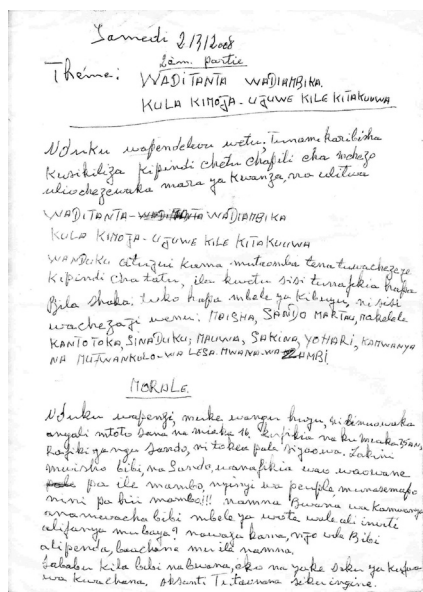 Samedi 2/3/2008
2èm. partie
Thème: WADITANTA WADIAMBIKA.
KULA KIMOJA - UJUWE KILE KITAKUUWA
Nduku wapendelevu wetu, tunami karibisha
kusikiliza kipindi chetu chapili cha mchezo
uliochezewaka mara ya kwanza, na ulitwa
WADITANTA - WADIAMBIKA
KULA KIMOJA - UJUWE KILE KITAKUUWA
WANDUKU citujui kama mutaomba tena tuwachezeze
kipindi cha tatu, ila kwetu sisi tunafikia hapa
Bila shaka tuko hapa mbele ya kibuyu, ni sisi
wachezaji wenu: MAISHA, SANDO MARTAU, nakelele
KANTOTOKA, SINADUKU; MAUWA, SAKINA, YOHARI, KAMWANYA
NA MUTWANKOLO - WA LESA MWANA - WA ZAMBI.
MORALE.
Nduku wapenzi, muke wangu huyu, ni
anyali mtoto sana na miaka 16, kufikia na ku miaka
Rafiki yangu Sando, ni tokea pale
mwisho bibi na Sando, wanafikia wao waowane
pa ile mambo, nyinyi wa peuple munasemapo
nini pa hii mambo!!! namna Bwana wa Kamwanya
anamuwacha bibi mbele ya wote wale ali
alifanya mubaya? nawaza kama, njo vile Bibi
alipenda, baachane mu ile namna.
Sababu kila bibi na bwana, eko na yake siku ya kufwa
wa kwachana, aksanti Tutaonana siku ingine.